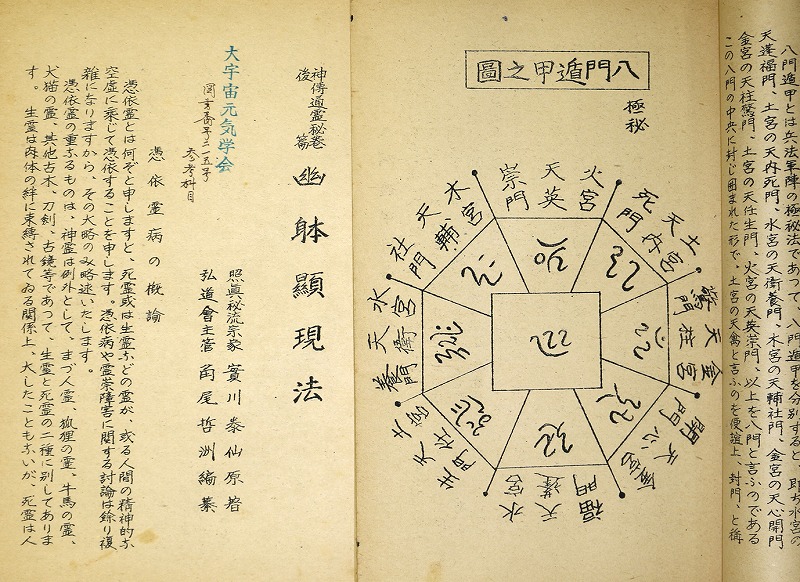 八門遁甲とは兵法軍陣の極秘法であつて、八門遁甲を分別すると、即ち水宮の
天蓬福門、土宮の天内死門、水宮の天衝養門、木宮の天輔社門、金宮の天心開門
金宮の天柱驚門、土宮の天任生門、火宮の天英崇門、以上を八門と言ふのである
この八門の中央に封じ囲まれた形で、土宮の天禽と言ふのを便誼上、封門、と稱
八門遁甲之圖
極秘
火宮
天英
崇門
土宮
天内
死門
金宮
天柱
驚門
天心
開門
水宮
天蓬
福門
天任
生門
水宮
天衝
養門
木宮
天輔
社門
神傳通靈秘巻
後篇
幽躰顯現法
大宇宙元気学会
参考科目
照眞秘流宗家 實川泰仙原著
弘道會主管 角尾哲洲編纂
憑依霊病の概論
憑依霊とは何ぞと申しますと、死霊或は生霊などの霊が、或る人間の精神的な
空虚に乗じて憑依することを申します。憑依病や霊祟障害に関する討論は餘り複
雑になりますから、その大略のみ略述いたします。
憑依霊の重なるものは、神霊は例外として、まづ人霊、狐狸の霊、牛馬の霊、
犬猫の霊、其他古木、刀剣、古鏡等であつて、生霊と死霊の二種に別してありま
す。生霊は肉体の絆に束縛されてゐる関係上、大したこともないが、死霊は人